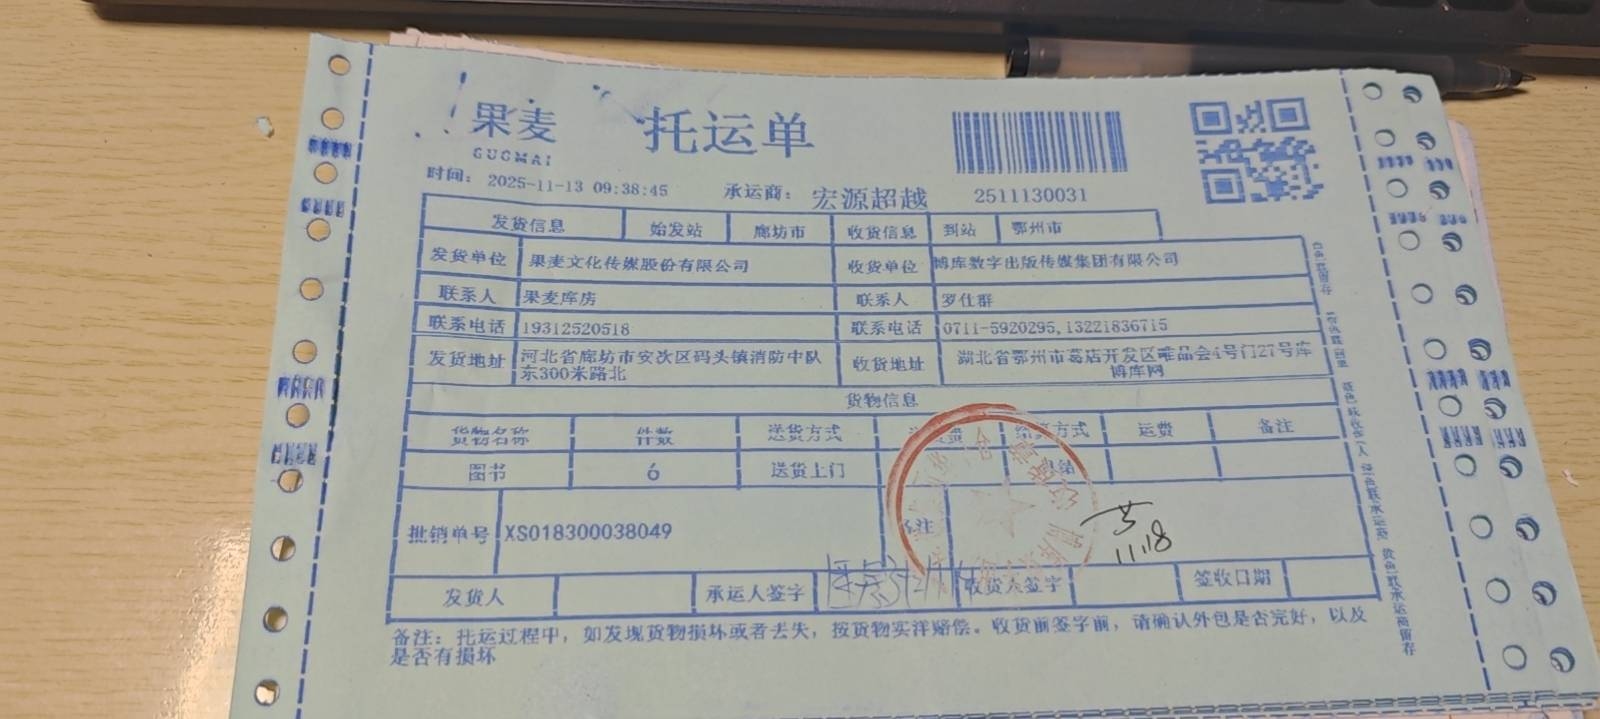 果麦
GUOMAI
托运单
时间: 2025-11-13 09:38:45 承运商: 宏源超越 2511130031
发货信息 始发站 廊坊市 收货信息 到站 鄂州市
发货单位 果麦文化传媒股份有限公司 收货单位 博库数字出版传媒集团有限公司
联系人 果麦库房 联系人 罗仕群
联系电话 19312520518 联系电话 0711-5920295,13221836715
发货地址 河北省廊坊市安次区码头镇消防中队东300米路北 收货地址 湖北省鄂州市葛店开发区唯品会4号门27号库博库网
货物信息
货物名称 件数 送货方式 结算方式 运费 备注
图书 6 送货上门
批销单号 XS018300038049 备注
11.18
发货人 承运人签字 收货人签字 签收日期
备注: 托运过程中, 如发现货物损坏或者丢失, 按货物实洋赔偿。收货前签字前, 请确认外包是否完好, 以及
是否有损坏